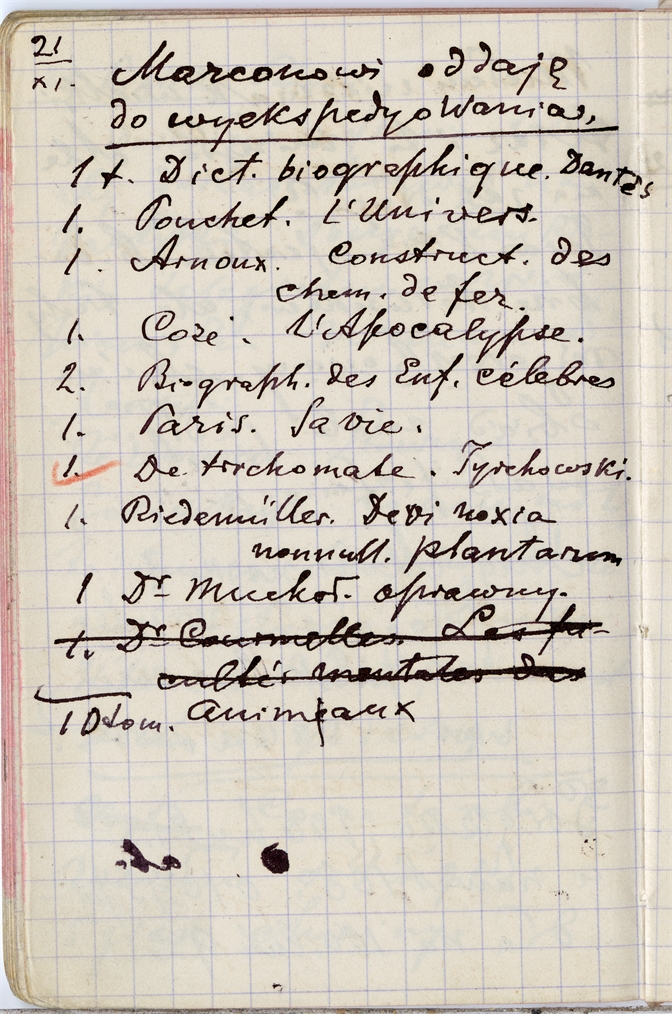 21
XI.
Marconowi oddaję
do wyekspedyowania,
1 t. Dict. biographique. Dantès
1. Pouchet. L'Univers.
1. Arnoux. Construct. des
chem. de fer.
1. Cozé. L'Apocalypse.
2. Biograph. des Enf. célèbres
1. Paris. Sa vie.
1. De trichomate. Tyrchowski.
1. Riedemüller. De vi noxia
nonnull. plantarum
1 Dr Muchoł. oprawny.
1. Dr Courmelles. Les fa-
cultés mentales des
10 tom. animaux